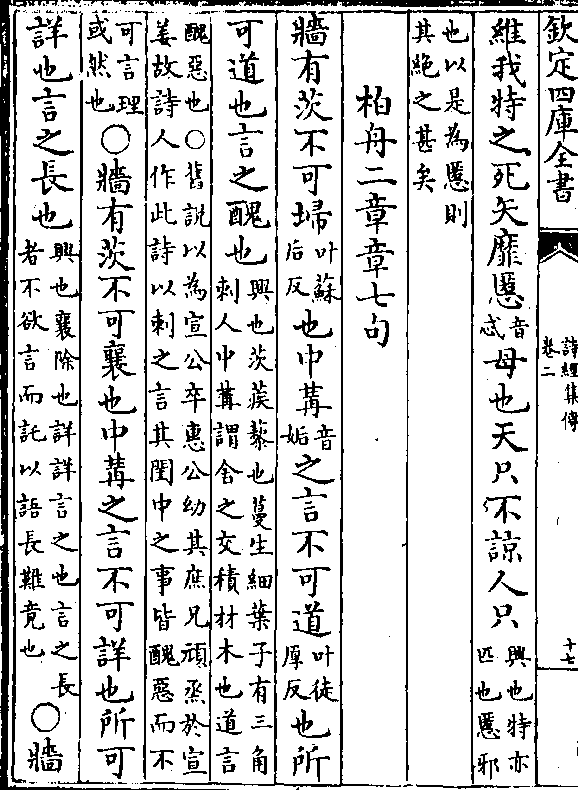 欽定四庫全書
詩經集傳
卷二
十七
維我特之死矢靡慝音忒母也天只不諒人只興也特亦匹也慝邪
也以是為慝則其絶之甚矣
柏舟二章章七句
牆有茨不可埽叶蘇后反也中冓音姤之言不可道叶徒厚反也所
可道也言之醜也興也茨蒺藜也蔓生細葉子有三角刺人中冓謂舍之交積材木也道言
醜惡也○舊説以為宣公卒惠公幼其庶兄頑烝於宣姜故詩人作此詩以刺之言其閨中之事皆醜惡而不
可言理或然也○牆有茨不可襄也中冓之言不可詳也所可
詳也言之長也興也襄除也詳詳言之也言之長者不欲言而託以語長難竟也○牆